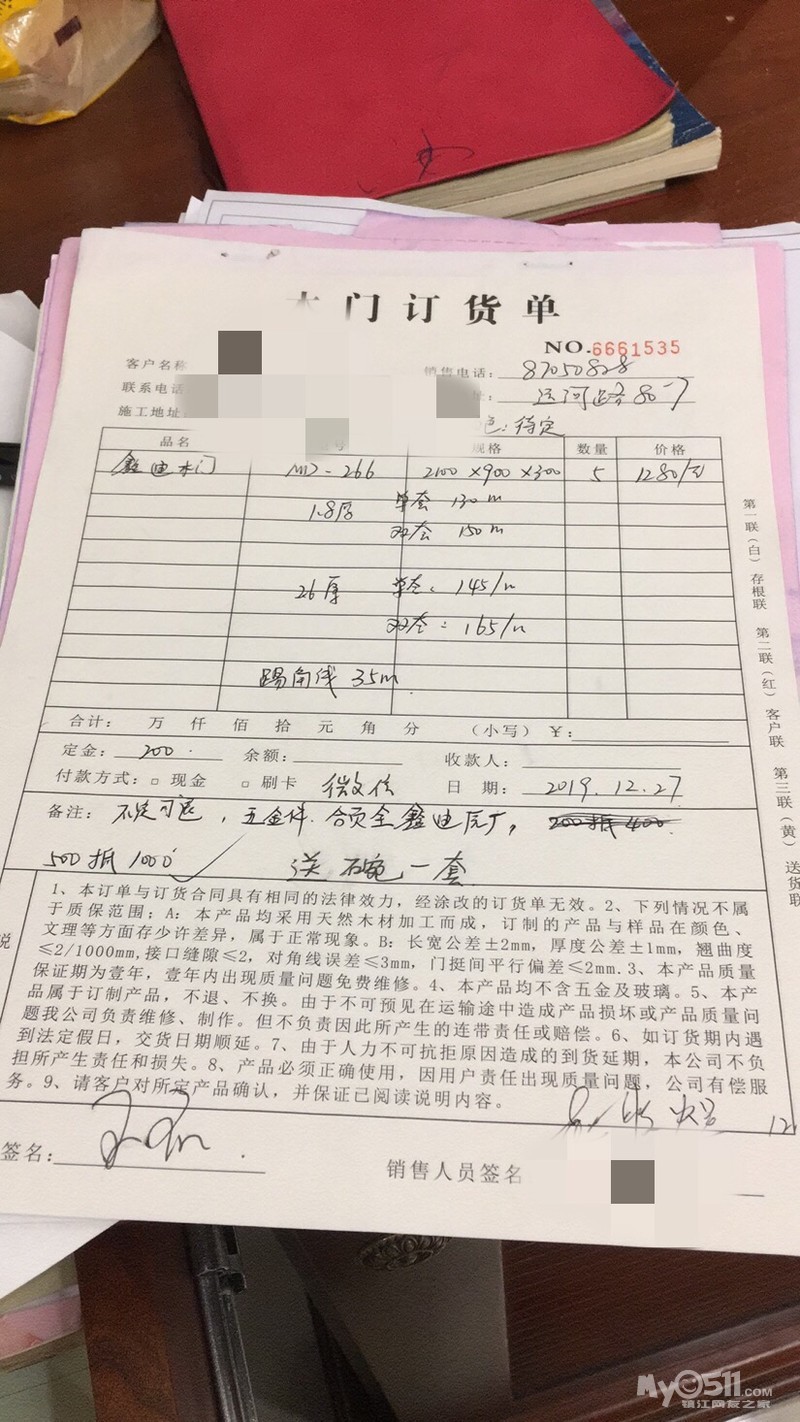 木门订货单
NO.6661535
客户名称 销售电话: 87050828
联系电话 址: 运河路80-7
施工地址: 色: 待定
品名 规格 数量 价格
鑫迪木门 MD-266 2100×900×300 5 1280/
1.8厚 单套 130m
双套 150m
2.6厚 单套: 145/m
双套: 165/m
踢角线 35m
合计: 万 仟 佰 拾 元 角 分 (小写) ¥:
定金: 200 余额: 收款人:
付款方式: □ 现金 □ 刷卡 微信 日 期: 2019.12.27
备注: 不定可退, 五金件.合页全鑫迪原厂, 200抵400
500抵1000 送 碗一套
1、本订单与订货合同具有相同的法律效力,经涂改的订货单无效。2、下列情况不属
于质保范围;A:本产品均采用天然木材加工而成,订制的产品与样品在颜色、
文理等方面存少许差异,属于正常现象。B:长宽公差±2mm,厚度公差±1mm,翘曲度
说 ≤2/1000mm,接口缝隙≤2,对角线误差≤3mm,门挺间平行偏差≤2mm.3、本产品质量
保证期为壹年,壹年内出现质量问题免费维修。4、本产品均不含五金及玻璃。5、本产
品属于订制产品,不退、不换。由于不可预见在运输途中造成产品损坏或产品质量问
题我公司负责维修、制作。但不负责因此所产生的连带责任或赔偿。6、如订货期内遇
到法定假日,交货日期顺延。7、由于人力不可抗拒原因造成的到货延期,本公司不负
担所产生责任和损失。8、产品必须正确使用,因用户责任出现质量问题,公司有偿服
务。9、请客户对所定产品确认,并保证已阅读说明内容。
签名:
销售人员签名
第一联(白)存根联 第二联(红)客户联 第三联(黄)送货联
MyO511.COM
镇江网友之家